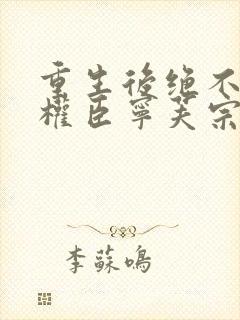 重生後絕不
權臣寧芙宗
李蘇鳴